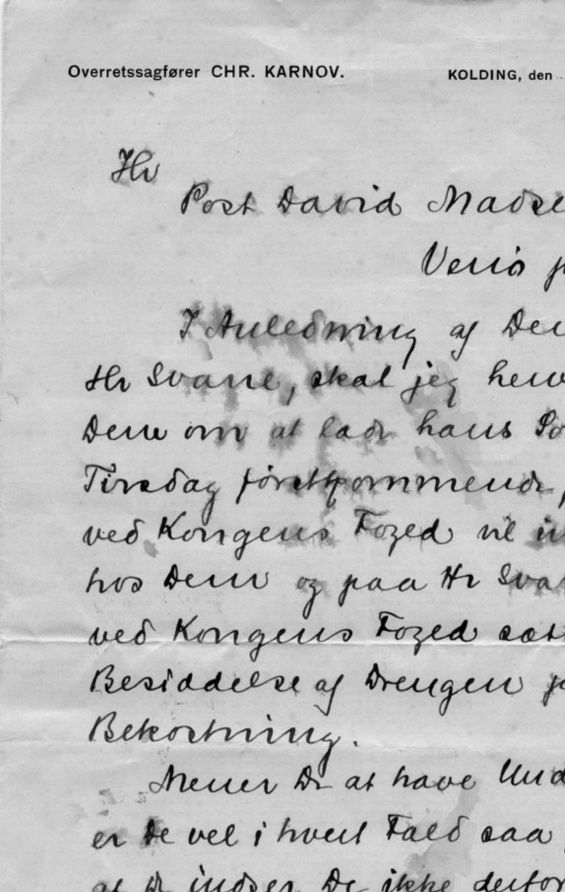 Overretssagfører CHR. KARNOV. KOLDING, den
Hr
Post David Madse
Venø p
I Anledning af Der
Hr Svane, skal jeg henv
Dem om at lade hans
Tirsdag førstkommende,
ved Kongens Foged vil
hos Dem og paa Hr Sva
ved Kongens Foged sæt
Besiddelse af Drengen p
Bekostning.
Mener De at have Und
er De vel i hvert Fald saa
at De indser De ikke derfor